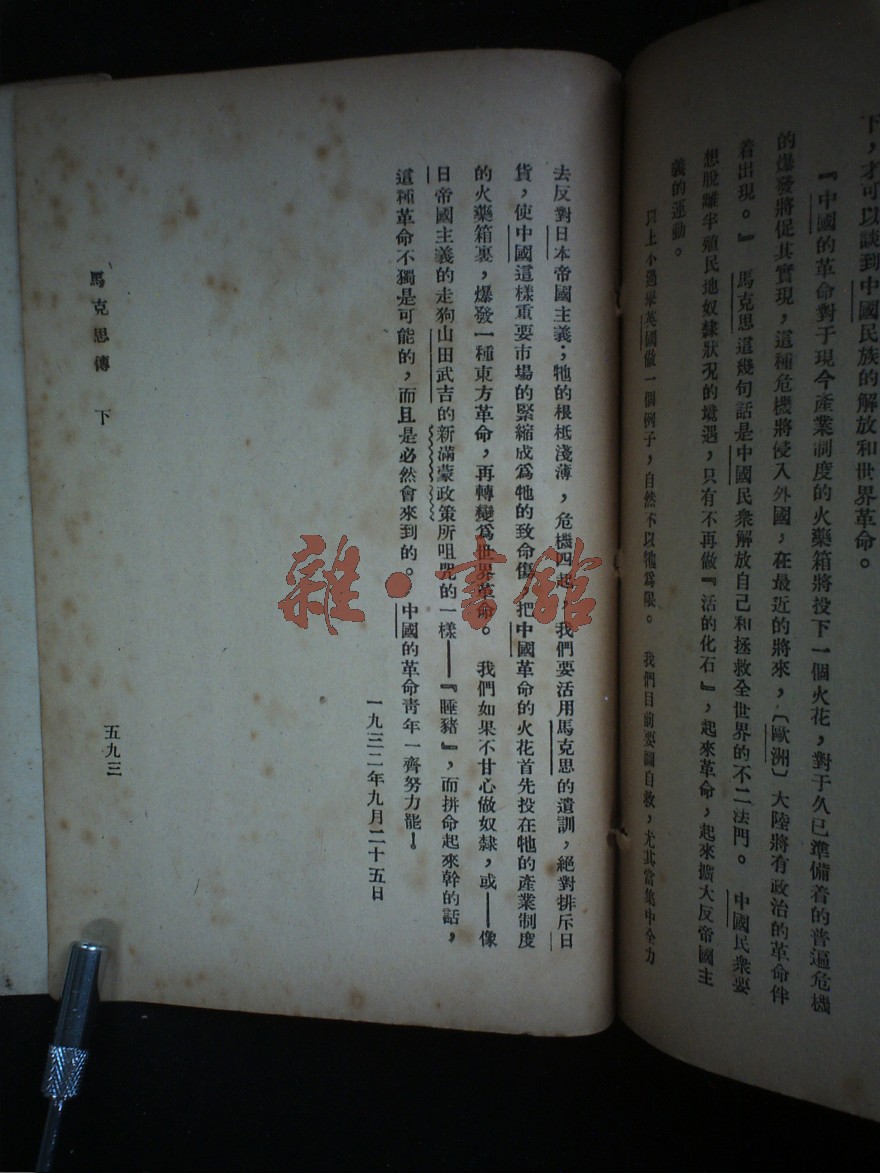 下，才可以談到中國民族的解放和世界革命。
『中國的革命對于現今產業制度的火藥箱將投下一個火花，對于久已準備着的普遍危機
的爆發將促其實現，這種危機將侵入外國，在最近的將來，〔歐洲〕大陸將有政治的革命伴
着出現。』　馬克思這幾句話是中國民衆解放自己和拯救全世界的不二法門。　中國民衆要
想脫離半殖民地奴隸狀況的境遇，只有不再做『活的化石』，起來革命，起來擴大反帝國主
義的運動。
以上不過舉英國做一個例子，自然不以牠爲限。　我們目前要圖自救，尤其當集中全力
去反對日本帝國主義；牠的根柢淺薄，危機四起，我們要活用馬克思的遺訓，絕對排斥日
貨，使中國這樣重要市場的緊縮成爲牠的致命傷，把中國革命的火花首先投在牠的產業制度
的火藥箱裏，爆發一種東方革命，再轉變爲世界革命。　我們如果不甘心做奴隸，或——像
日帝國主義的走狗山田武吉的新滿蒙政策所咀咒的一樣——『睡豬』，而拼命起來幹的話，
這種革命不獨是可能的，而且是必然會來到的。　中國的革命靑年一齊努力罷！
一九三二年九月二十五日
馬克思傳　下
五九三
雜·書館